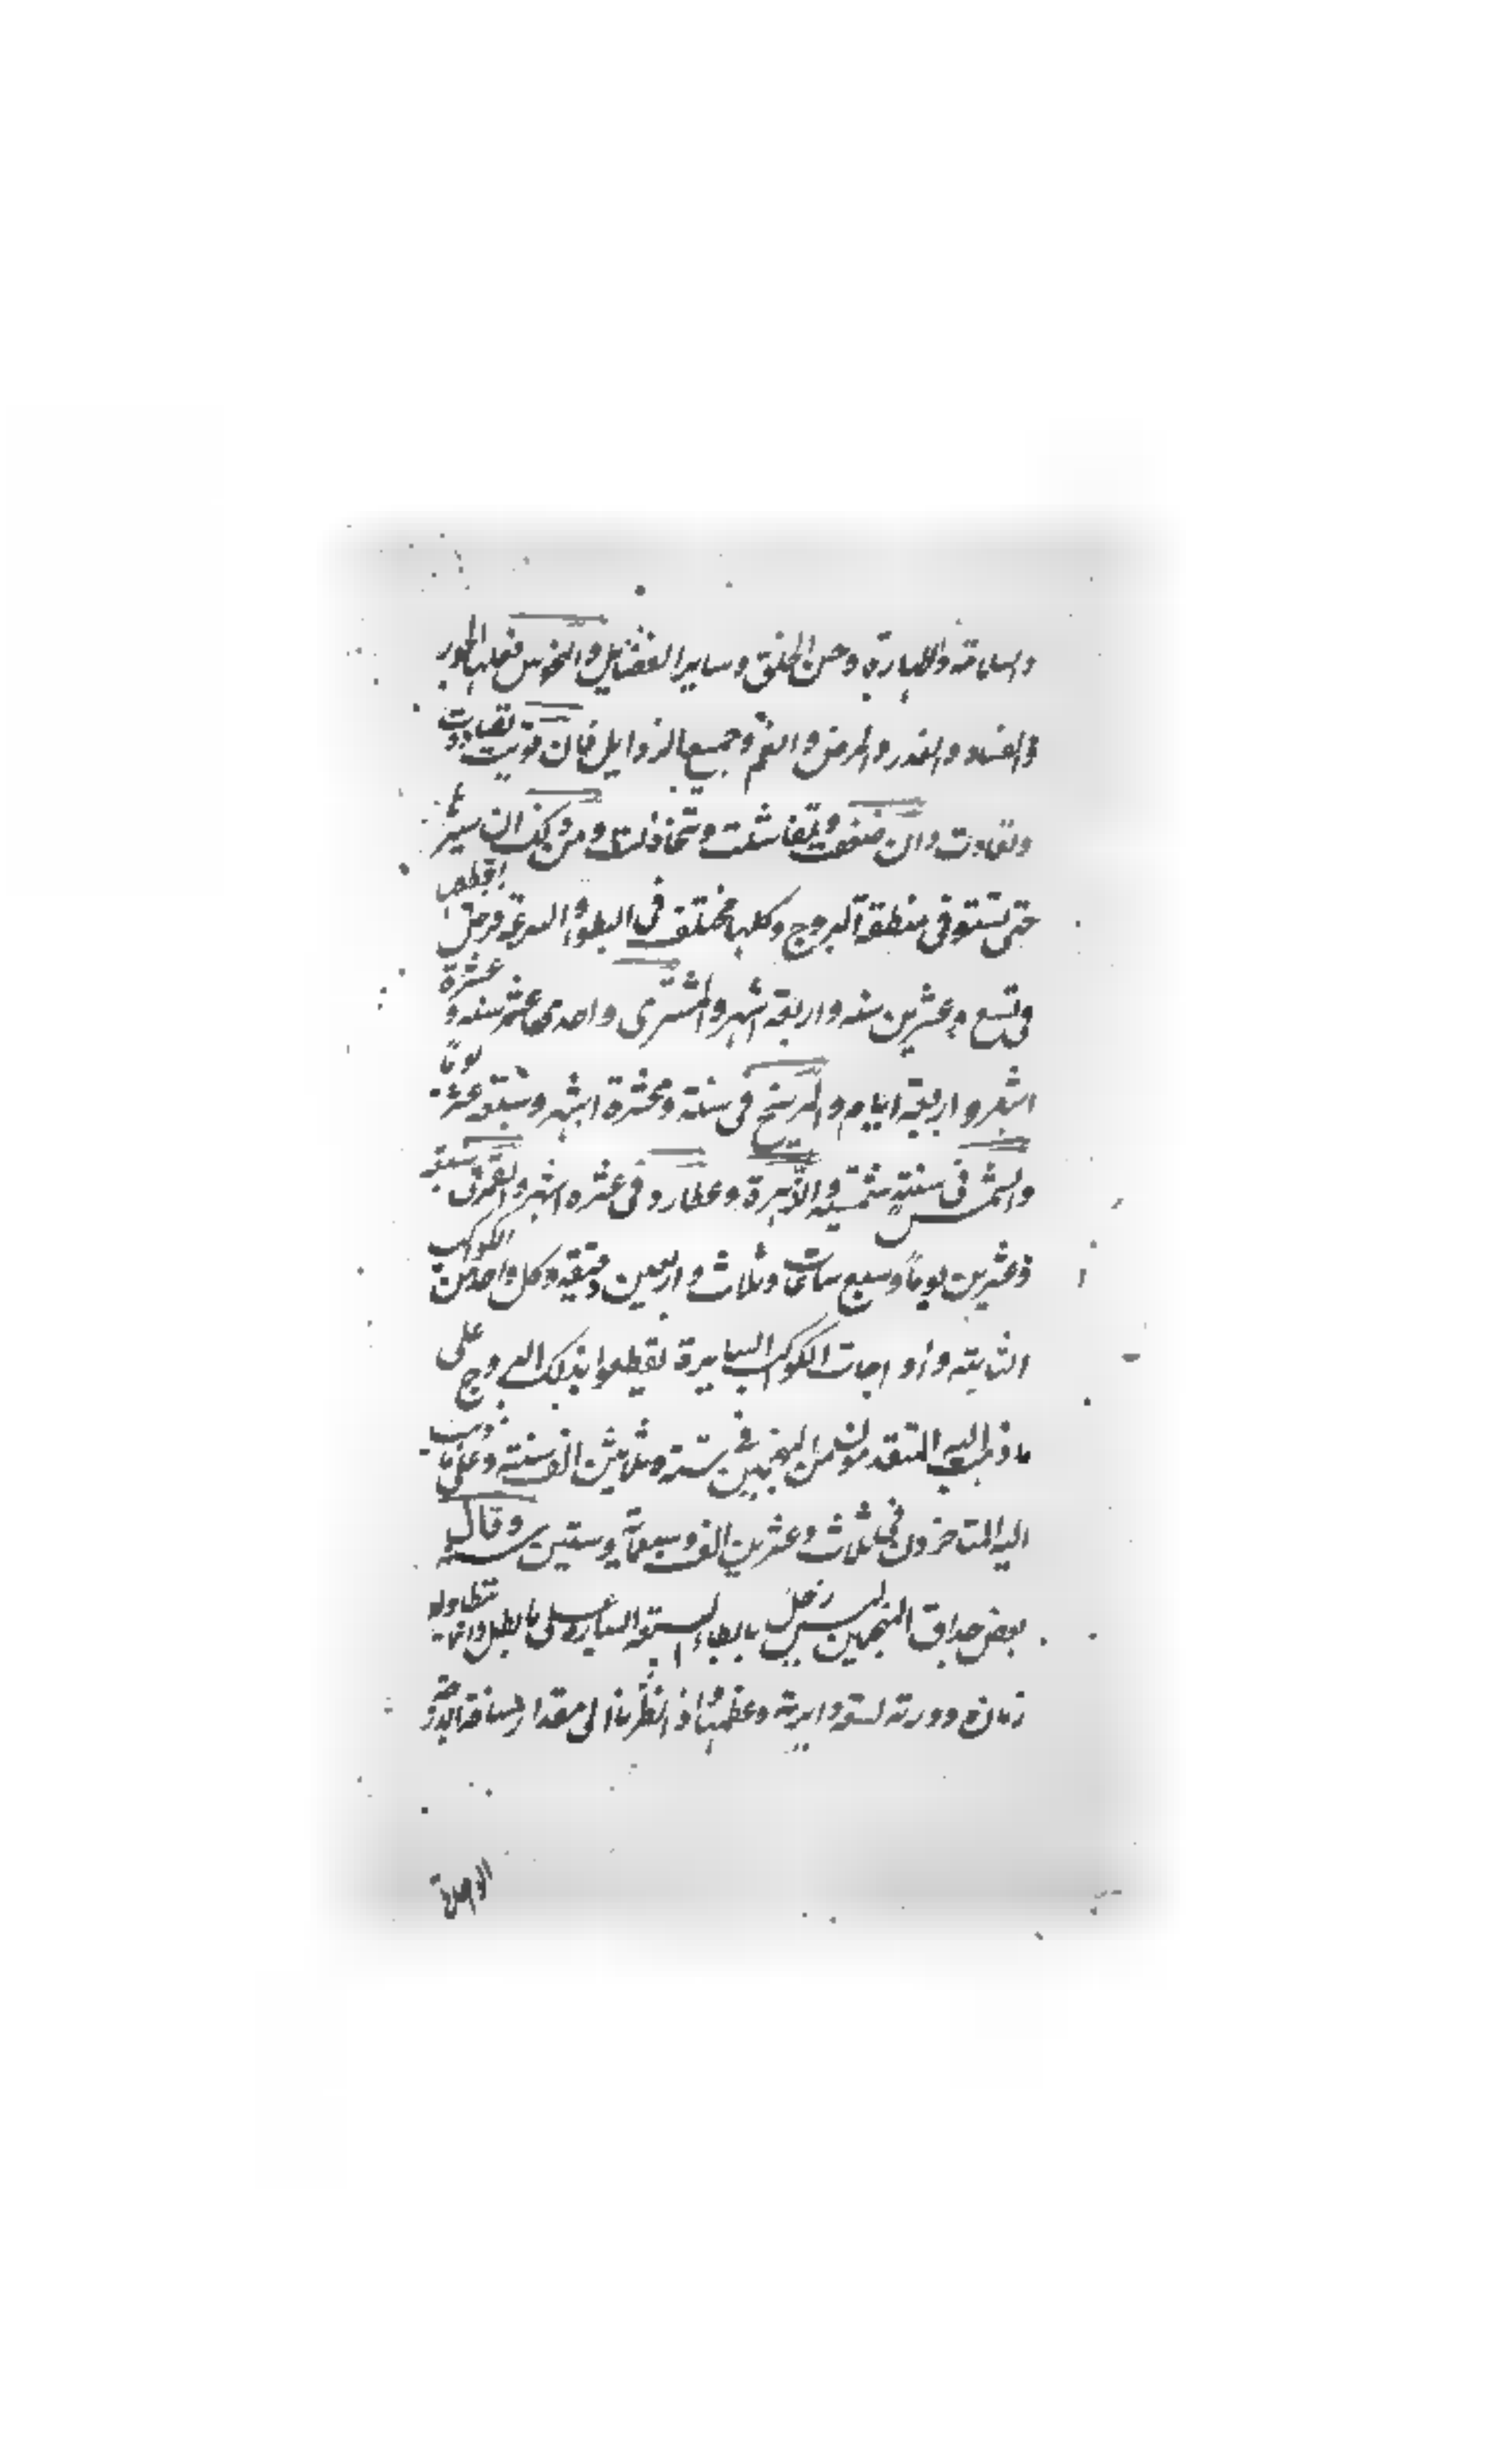 والسلامة والطهارة وحسن الخلق وساير الفضايل والنحوس فعلها الجور
والفساد والغدر والمرض والغم وجميع الرذايل فان قويت تضادت
وتعادت وان ضعفت وتفاشلت وتخاذلت ومن ذلك ان سيرها
حتى تستوفى منطقة البروج وكلها مختلف فى البطو والسرعة فزحل يقطعها
فى تسع وعشرين سنه واربعة اشهر والمشترى واحدى عشر سنه وعشرة
اشهر واربعة ايام والمريخ فى سنة وعشرة اشهر وسبعة عشر يوما
والشمس فى سنة شمسية والزهرة وعطارد فى عشره اشهر والقمر فى سبعة
وعشرين يوماً وسبع ساعات وثلاث واربعين دقيقه وكل واحد من الكواكب
الثابته واوجات الكواكب السايرة يقطعوا بذلك البروج على
ما ذهب اليه المتقدمون من المنجمين فى ستة وثلاثين الف سنته وعلى ما ذهب
اليه المتاخرون فى ثلاث وعشرين الف وسبعماية وستين سنه وقال
بعض حداق المنجمين ليس زحل بابطاء السبعة السيارة على ما بطل وانما يتطاول
زمان دورته لسعة دايرته وعظمها واذا نظرنا الى مقدار المسافة